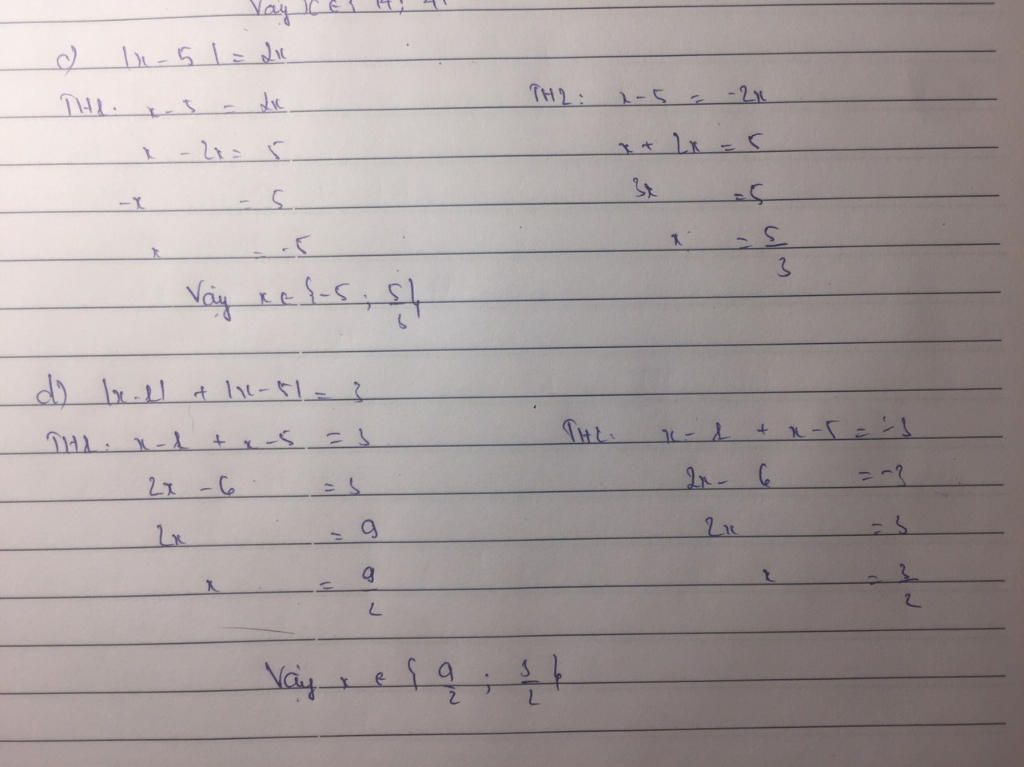 c) |x - 5| = 2x
TH1: x - 5 = 2x
x - 2x = 5
-x = 5
x = -5
TH2: x - 5 = -2x
x + 2x = 5
3x = 5
x = 5/3
Vậy x ∈ {-5 ; 5/3}
d) |x - 1| + |x - 5| = 3
TH1: x - 1 + x - 5 = 3
2x - 6 = 3
2x = 9
x = 9/2
TH2: x - 1 + x - 5 = -3
2x - 6 = -3
2x = 3
x = 3/2
Vậy x ∈ { 9/2 ; 3/2 }